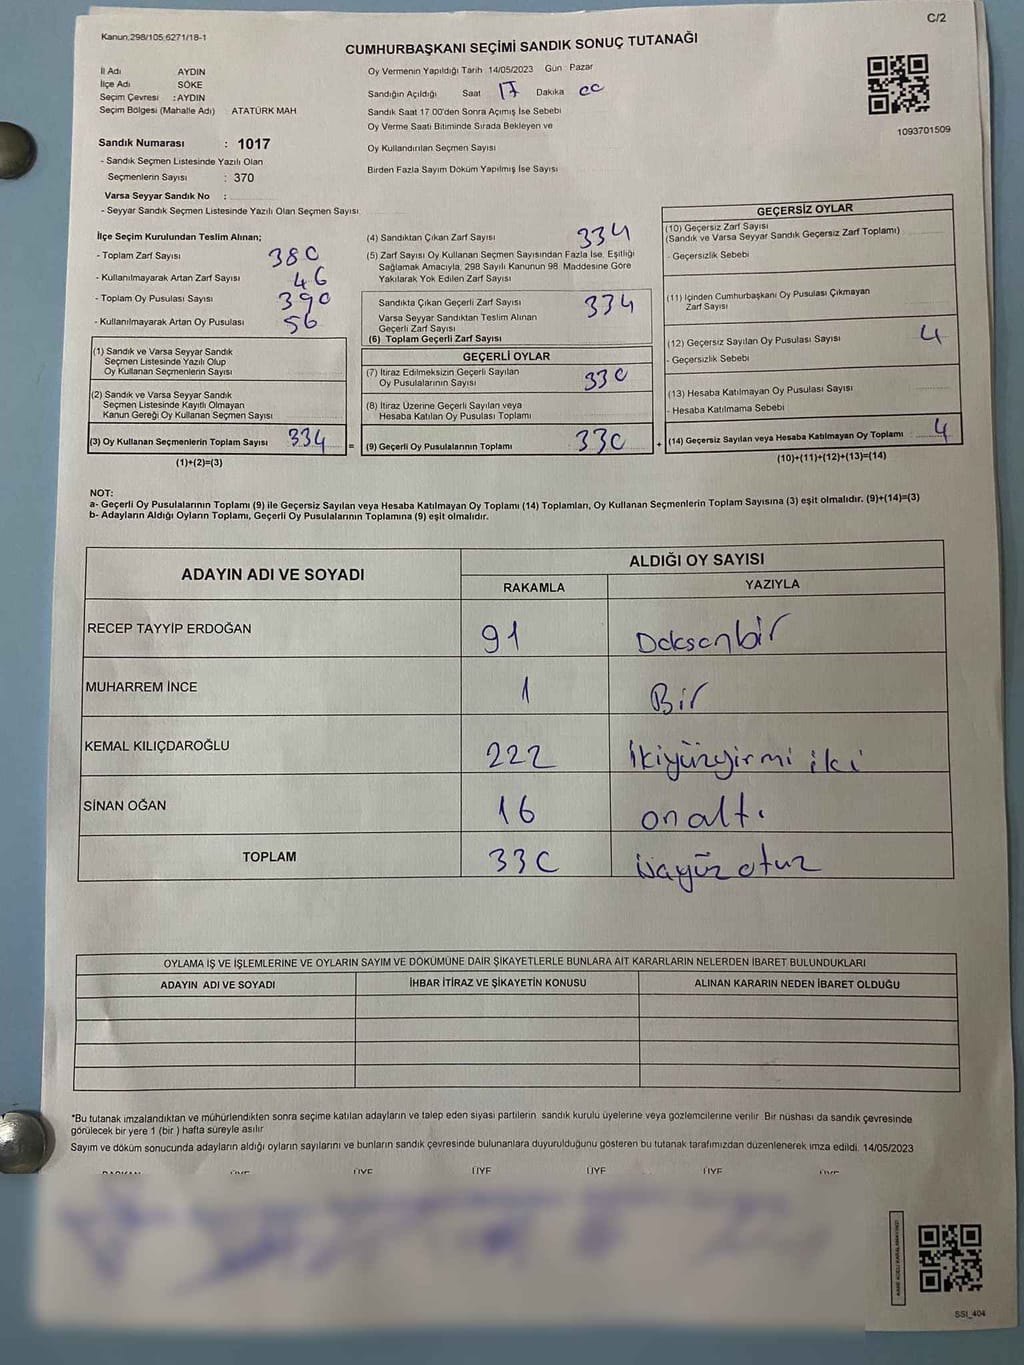 C/2
Kanun.298/105.6271/18-1
CUMHURBAŞKANI SEÇİMİ SANDIK SONUÇ TUTANAĞI
1093701509
İl Adı AYDIN
İlçe Adı SÖKE
Seçim Çevresi : AYDIN
Seçim Bölgesi (Mahalle Adı) ATATÜRK MAH
Sandık Numarası : 1017
- Sandık Seçmen Listesinde Yazılı Olan
Seçmenlerin Sayısı : 370
Varsa Seyyar Sandık No :
- Seyyar Sandık Seçmen Listesinde Yazılı Olan Seçmen Sayısı
Oy Vermenin Yapıldığı Tarih 14/05/2023 Gün : Pazar
Sandığın Açıldığı Saat 17 Dakika 00
Sandık Saat 17.00'den Sonra Açımış İse Sebebi
Oy Verme Saati Bitiminde Sırada Bekleyen ve
Oy Kullandırılan Seçmen Sayısı
Birden Fazla Sayım Döküm Yapılmış İse Sayısı
İlçe Seçim Kurulundan Teslim Alınan;
- Toplam Zarf Sayısı 380
- Kullanılmayarak Artan Zarf Sayısı 46
- Toplam Oy Pusulası Sayısı 390
- Kullanılmayarak Artan Oy Pusulası 56
(1) Sandık ve Varsa Seyyar Sandık
Seçmen Listesinde Yazılı Olup
Oy Kullanan Seçmenlerin Sayısı
(2) Sandık ve Varsa Seyyar Sandık
Seçmen Listesinde Kayıtlı Olmayan
Kanun Gereği Oy Kullanan Seçmen Sayısı
(3) Oy Kullanan Seçmenlerin Toplam Sayısı 334 =
(1)+(2)=(3)
(4) Sandıktan Çıkan Zarf Sayısı 334
(5) Zarf Sayısı Oy Kullanan Seçmen Sayısından Fazla İse, Eşitliği
Sağlamak Amacıyla, 298 Sayılı Kanunun 98. Maddesine Göre
Yakılarak Yok Edilen Zarf Sayısı
Sandıkta Çıkan Geçerli Zarf Sayısı 334
Varsa Seyyar Sandıktan Teslim Alınan
Geçerli Zarf Sayısı
(6) Toplam Geçerli Zarf Sayısı
GEÇERLİ OYLAR
(7) İtiraz Edilmeksizin Geçerli Sayılan
Oy Pusulalarının Sayısı 330
(8) İtiraz Üzerine Geçerli Sayılan veya
Hesaba Katılan Oy Pusulası Toplamı
(9) Geçerli Oy Pusulalarının Toplamı 330 +
GEÇERSİZ OYLAR
(10) Geçersiz Zarf Sayısı
(Sandık ve Varsa Seyyar Sandık Geçersiz Zarf Toplamı)
- Geçersizlik Sebebi
(11) İçinden Cumhurbaşkanı Oy Pusulası Çıkmayan
Zarf Sayısı
(12) Geçersiz Sayılan Oy Pusulası Sayısı 4
- Geçersizlik Sebebi
(13) Hesaba Katılmayan Oy Pusulası Sayısı
- Hesaba Katılmama Sebebi
(14) Geçersiz Sayılan veya Hesaba Katılmayan Oy Toplamı 4
(10)+(11)+(12)+(13)=(14)
NOT:
a- Geçerli Oy Pusulalarının Toplamı (9) ile Geçersiz Sayılan veya Hesaba Katılmayan Oy Toplamı (14) Toplamları, Oy Kullanan Seçmenlerin Toplam Sayısına (3) eşit olmalıdır. (9)+(14)=(3)
b- Adayların Aldığı Oyların Toplamı, Geçerli Oy Pusulalarının Toplamına (9) eşit olmalıdır.
ADAYIN ADI VE SOYADI ALDIĞI OY SAYISI
RAKAMLA YAZIYLA
RECEP TAYYİP ERDOĞAN 91 Doksanbir
MUHARREM İNCE 1 Bir
KEMAL KILIÇDAROĞLU 222 İkiyüzyirmi iki
SİNAN OĞAN 16 onaltı
TOPLAM 330 üçyüz otuz
OYLAMA İŞ VE İŞLEMLERİNE VE OYLARIN SAYIM VE DÖKÜMÜNE DAİR ŞİKAYETLERLE BUNLARA AİT KARARLARIN NELERDEN İBARET BULUNDUKLARI
ADAYIN ADI VE SOYADI İHBAR İTİRAZ VE ŞİKAYETİN KONUSU ALINAN KARARIN NEDEN İBARET OLDUĞU
*Bu tutanak imzalandıktan ve mühürlendikten sonra seçime katılan adayların ve talep eden siyasi partilerin sandık kurulu üyelerine veya gözlemcilerine verilir. Bir nüshası da sandık çevresinde
görülecek bir yere 1 (bir ) hafta süreyle asılır.
Sayım ve döküm sonucunda adayların aldığı oyların sayılarını ve bunların sandık çevresinde bulunanlara duyurulduğunu gösteren bu tutanak tarafımızdan düzenlenerek imza edildi. 14/05/2023
BAŞKAN ÜYE ÜYE ÜYE ÜYE ÜYE ÜYE
SSI_404